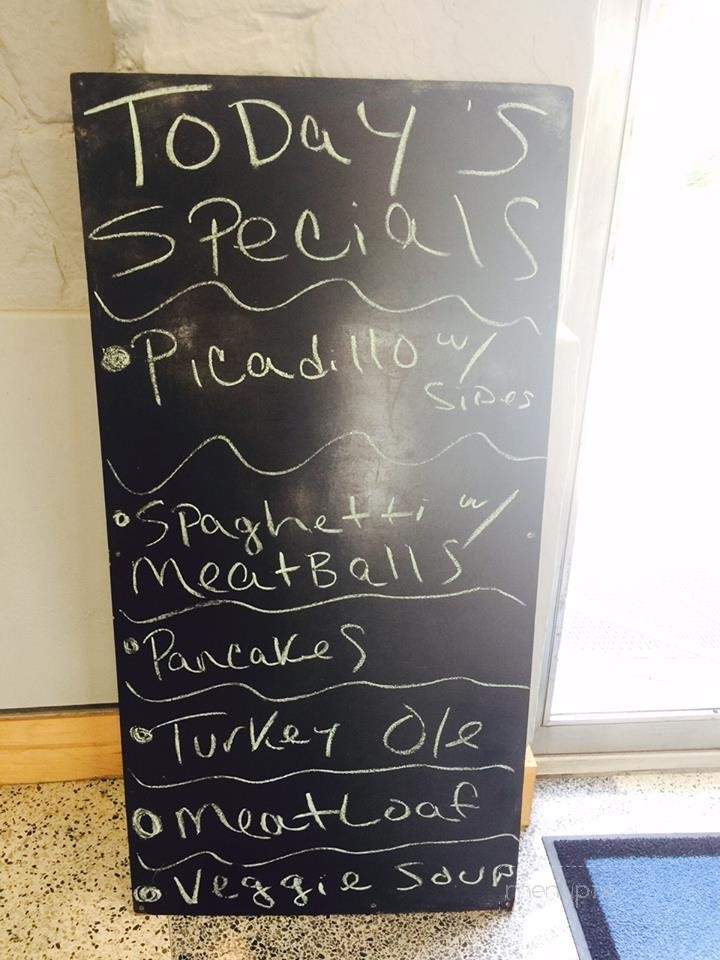 ToDay's
Specials
Picadillo w/
Sides
Spaghetti w/
MeatBalls
Pancakes
Turkey Ole
MeatLoaf
Veggie Soup